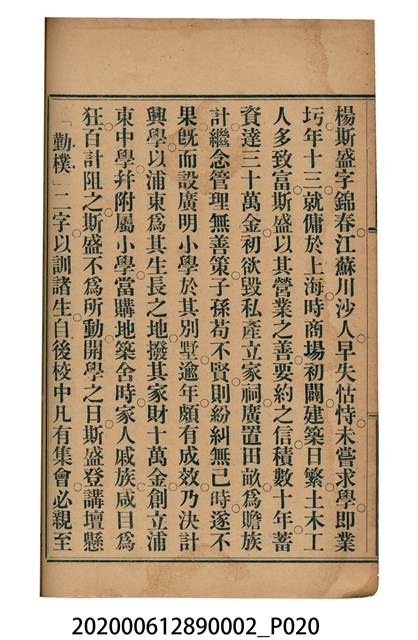 楊斯盛字錦春江蘇川沙人早失怙恃未嘗求學即業
圬年十三就傭於上海時商場初闢建築日繁土木工
人多致富斯盛以其營業之善要約之信積數十年蓄
資達三十萬金初欲毀私產立家祠廣置田畝爲贍族
計繼念管理無善策子孫苟不賢則紛糾無已時遂不
果旣而設廣明小學於其別墅逾年頗有成效乃決計
興學以浦東爲其生長之地撥其家財十萬金創立浦
東中學幷附屬小學當購地築舍時家人戚族咸目爲
狂百計阻之斯盛不爲所動開學之日斯盛登講壇懸
「勤樸」二字以訓諸生自後校中凡有集會必親至
202000612890002_P020